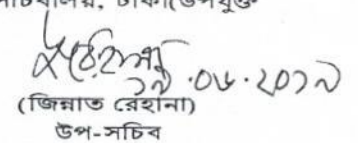 সচিবালয়, ঢাকা(উপযুক্ত
১৯.০৬.২০১৯
(জিন্নাত রেহানা)
উপ-সচিব